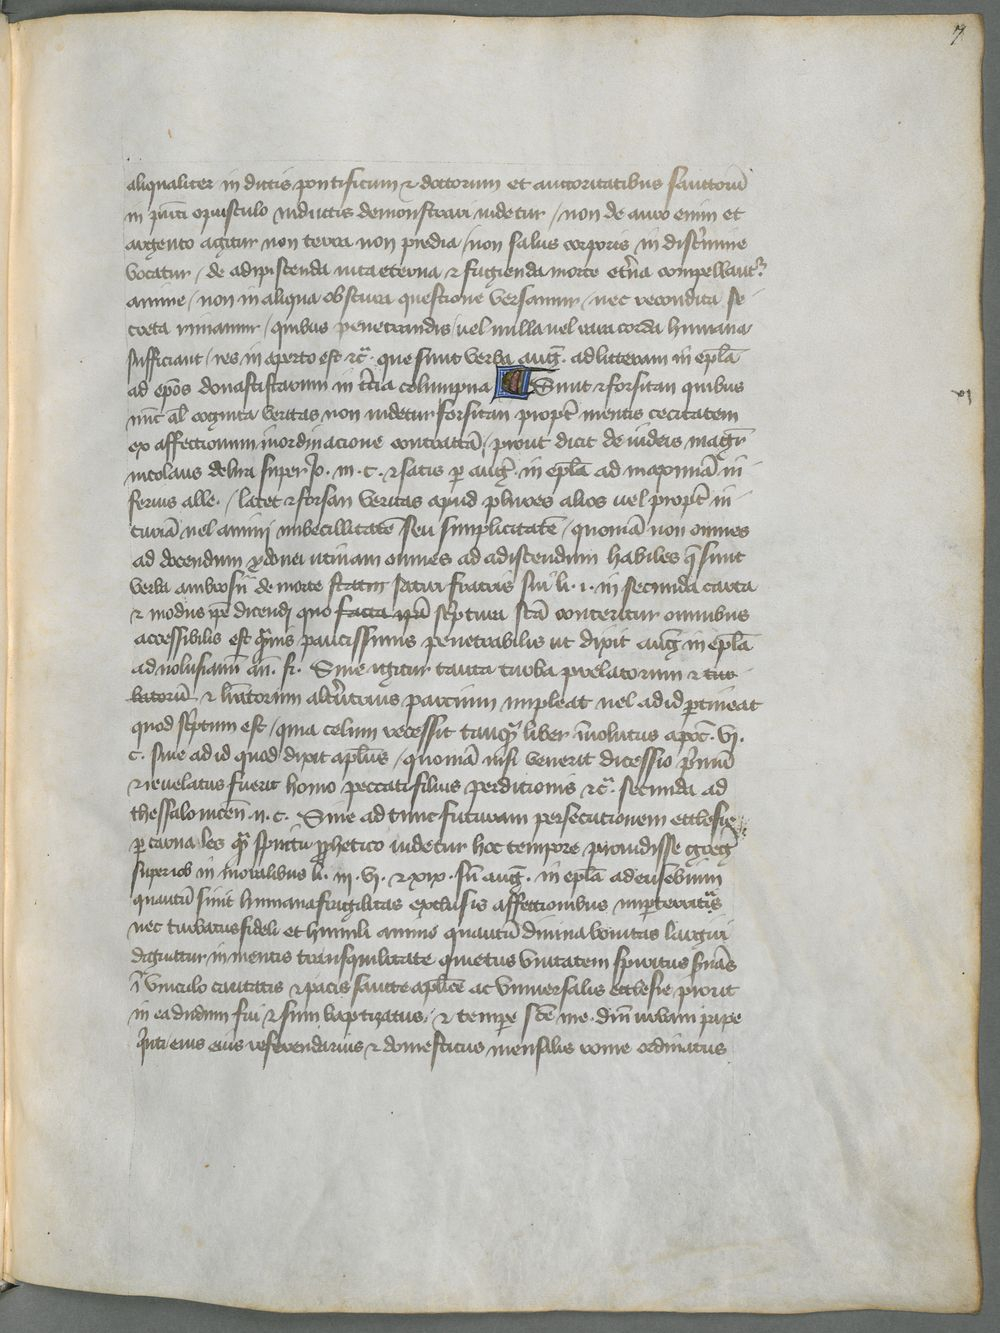 7
aliqualiter in dictis pontificum & doctorum et auctoritatibus sanctorũ
in pñti opusculo inductis demonstrari uidetur / non de auro enim et
argento agitur non terra non predia / non salus corporis in discĩmine
vocatur / de adipiscenda uita eterna & fugienda morte etẽna compellant᷑
anime / non in aliqua obscura questione versamur / nec recondita se
creta rimamur / quibus penetrandis / uel nulla uel rara corda humana
sufficiunt / res in aperto est &c̃. que sunt verba aug̃. ad litteram in ep̃la
ad ep̃os donastistarum in t̃cia columpna Sunt & forsitan quibus
nũc al̃ cognita veritas non uidetur forsitan propt̃ mentis cecitatem
ex affectionum inordinacione contractã / prout dicit de iudeis mag̃r
nicolaus de lira super Jo. in. c. & satis p aug̃. in ep̃la ad maximũ in
ferius alle. / latet & forsan veritas apud plures alios uel propt̃ in
curiã uel animi imbecillitatẽ seu simplicitatẽ / quoniã non omnes
ad docendum ydonei utinam omnes ad adiscendum habiles q̃ sunt
verba ambrosij de morte statim satiri fratris sui li. i. in secunda carta
& modus ip̃e dicendi quo facta ip̃a sc̃ptura sc̃a contexitur omnibus
accessibilis est q̃muis paucissimis penetrabilis ut dixit aug̃ in ep̃la
ad uolusianũ an. fi. Siue igitur tanta turba prelatorum & tur
batorũ & l̃ratorum alt̃utrius partium impleat uel ad id ptineat
quod sc̃ptum est / quia celum recessit tanq̃ liber inuolutus apoc̃. vi.
c. siue ad id quod dixit ap̃lus / quoniã nisi venerit dicessio p̃mũ
& reuelatus fuerit homo peccati filius perditionis &c̃. secunda ad
thessalonicen̄. ii. c. Siue ad tunc futuram persecutionem ecclesie
p carnales q̃ spiritu p̃phetico uidetur hoc tempore preuidisse greg̃
super iob in moralibus li. iii. vi. & xix. Sũ aug̃. in ep̃la ad eusebium
quantũ sinit humana fragilitas exclusis affectionibus imperterritus
nec turbatus fideli et humili anime quantũ diuina bonitas largiri
dignatur in mentis transquilitate quietus vnitatem spiritus suãs
ĩ vinculo caritatis & pacis sancte ap̃lice ac vniuersalis ecclesie prout
in ea dudum fui & sum baptizatus. & tempe sc̃e me. dñi urbani pape
q̃nti eius eius referendarius & domesticus mensalis rome ordinatus